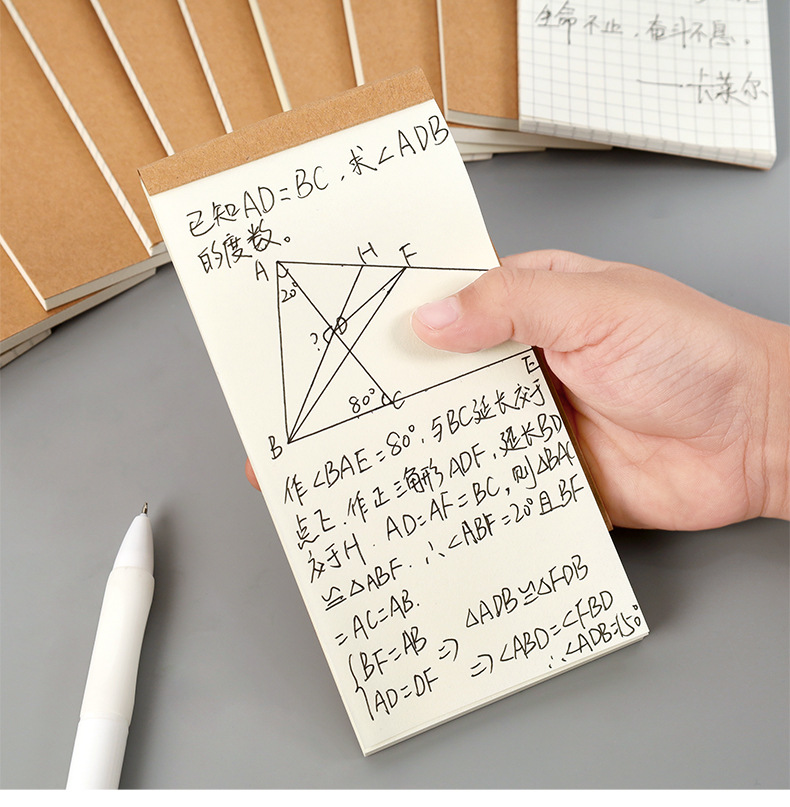 生命不止，奋斗不息。
——卡莱尔
已知AD=BC，求∠ADB
的度数。
A
H
F
20°
?
D
80°
C
E
B
作∠BAE=80°，与BC延长交于
点E. 作正三角形ADF，延长BD
交于H. AD=AF=BC，则△BAC
≌△ABF. ∴∠ABF=20°且BF
=AC=AB.
{BF=AB
AD=DF ⇒ △ADB≌△FDB
⇒∠ABD=∠FBD
∴∠ADB=150°